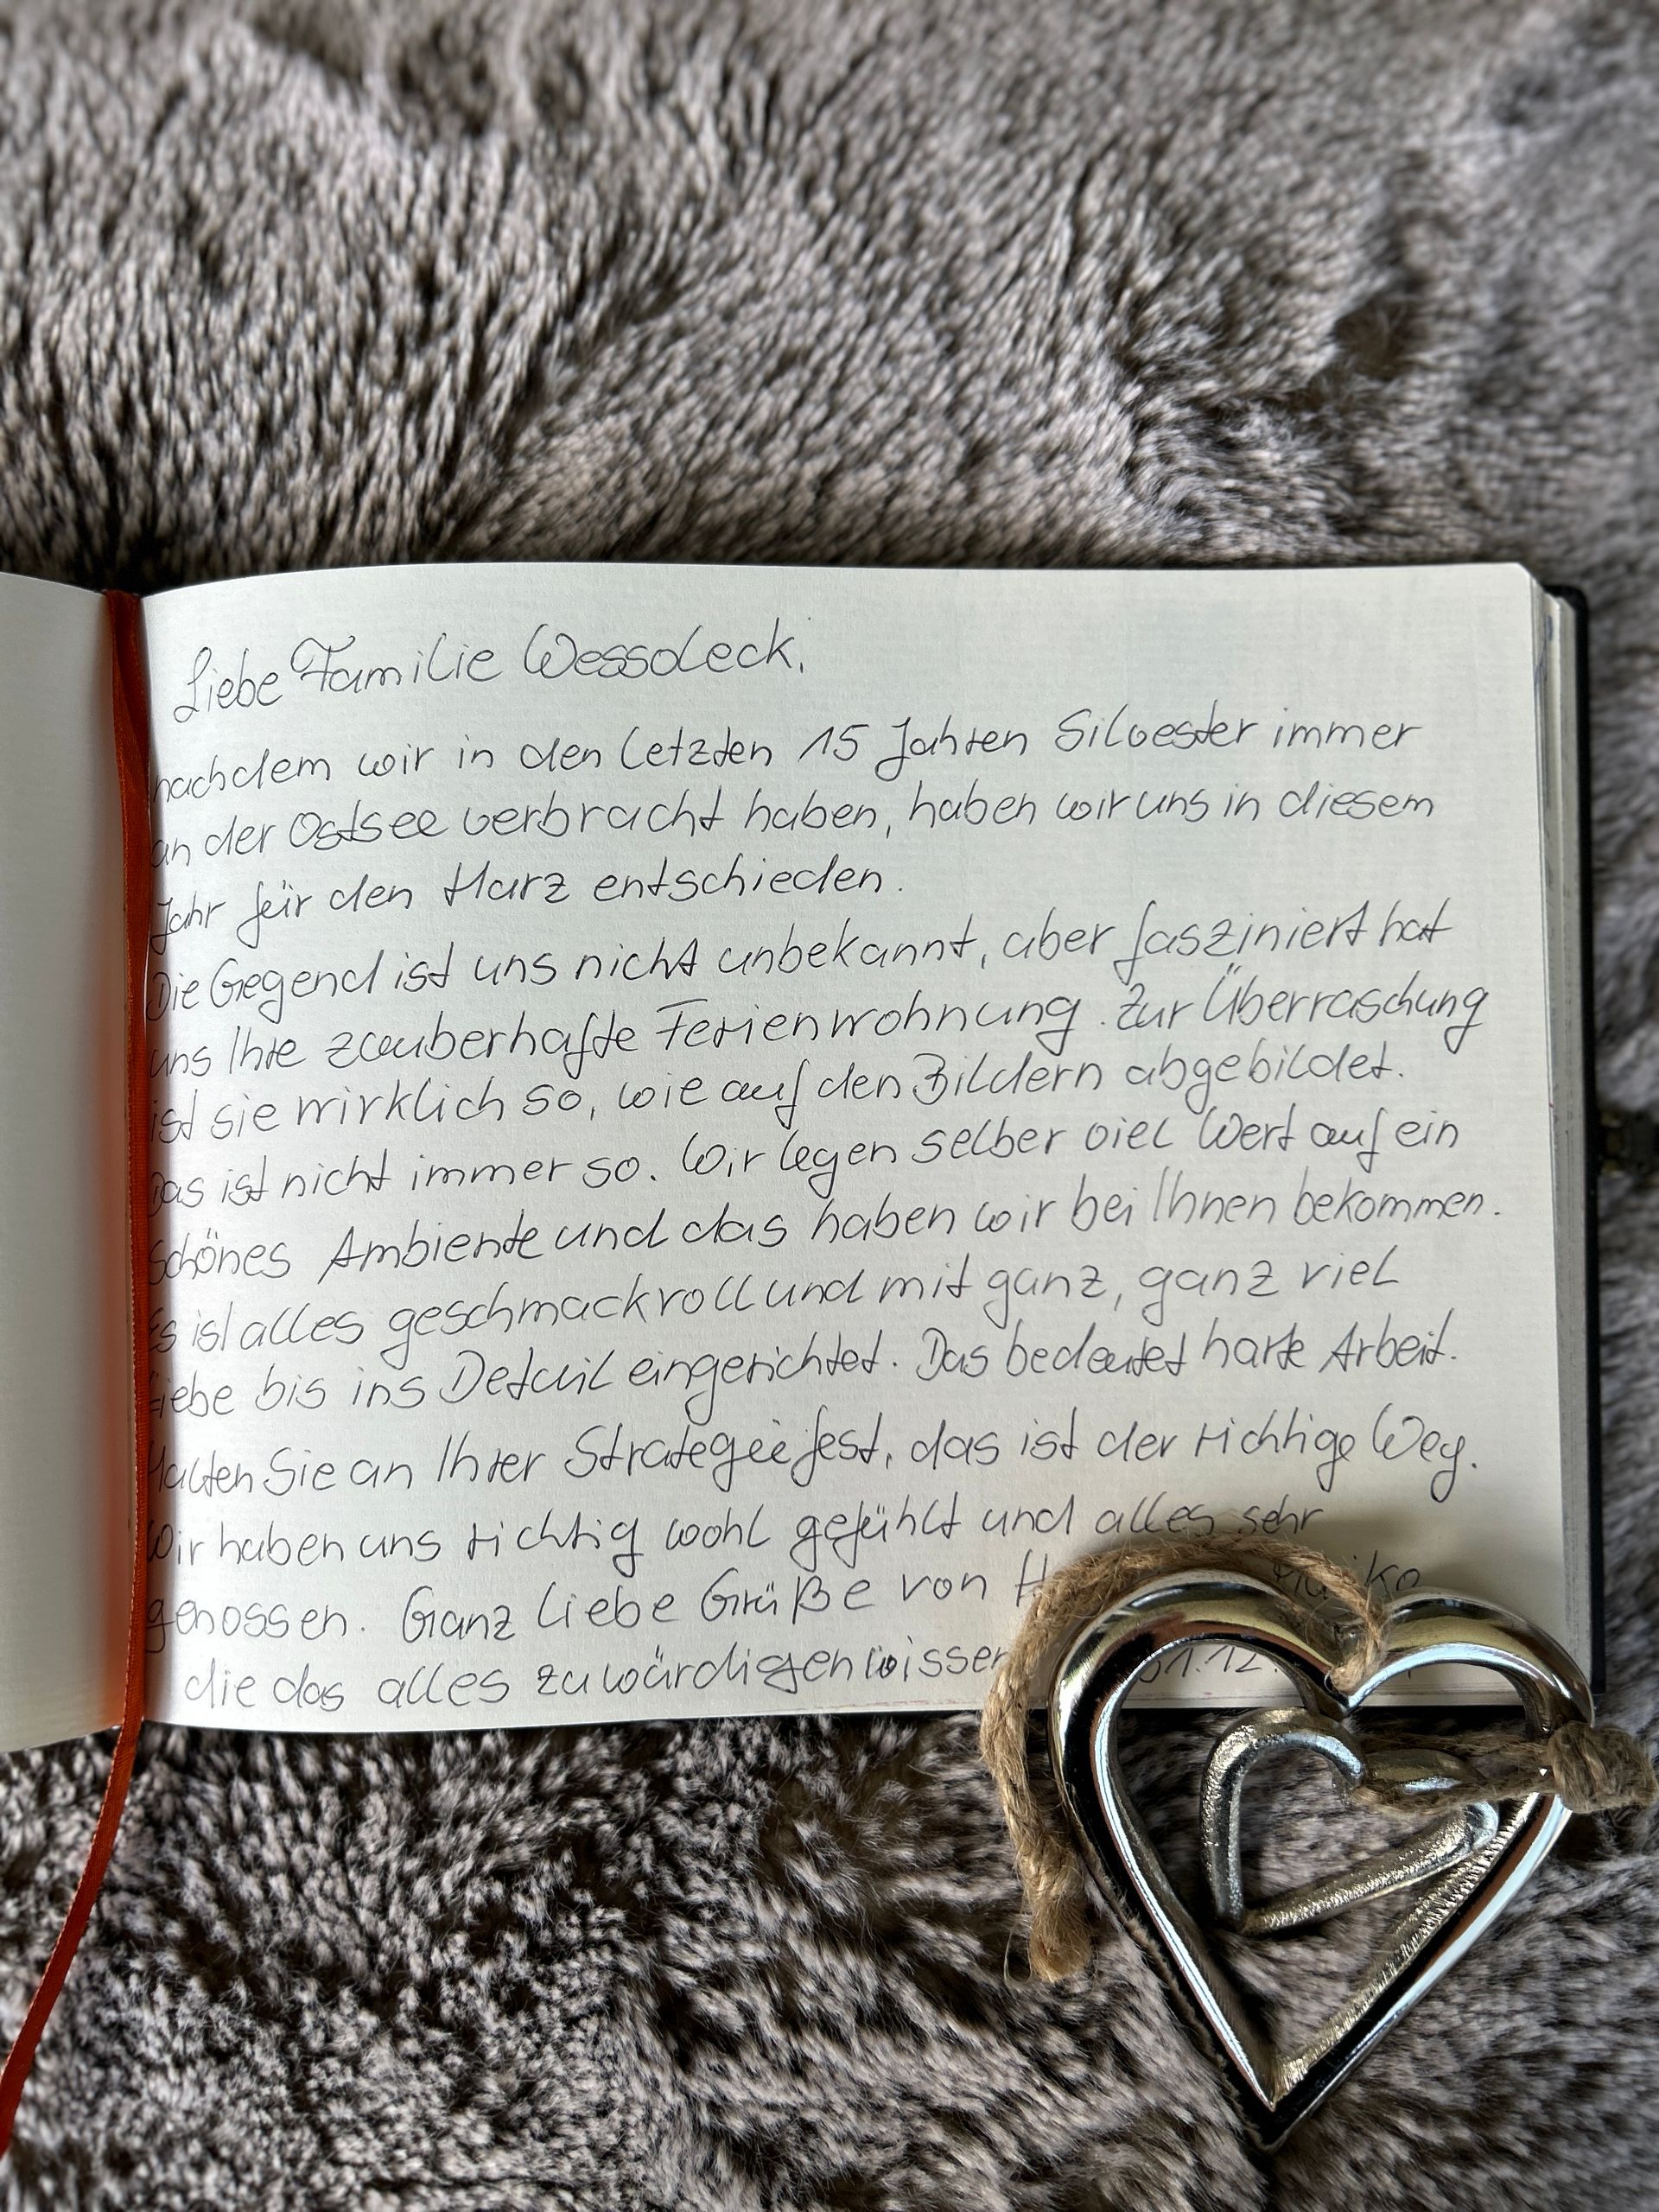 Liebe Familie Wessoleck,
nachdem wir in den letzten 15 Jahren Silvester immer
an der Ostsee verbracht haben, haben wir uns in diesem
Jahr für den Harz entschieden.
Die Gegend ist uns nicht unbekannt, aber fasziniert hat
uns Ihre zauberhafte Ferienwohnung. Zur Überraschung
ist sie wirklich so, wie auf den Bildern abgebildet.
Das ist nicht immer so. Wir legen selber viel Wert auf ein
schönes Ambiente und das haben wir bei Ihnen bekommen.
Es ist alles geschmackvoll und mit ganz, ganz viel
Liebe bis ins Detail eingerichtet. Das bedeutet harte Arbeit.
Halten Sie an Ihrer Strategie fest, das ist der richtige Weg.
Wir haben uns richtig wohl gefühlt und alles sehr
genossen. Ganz liebe Grüße von
die das alles zu würdigen wissen 31.12.